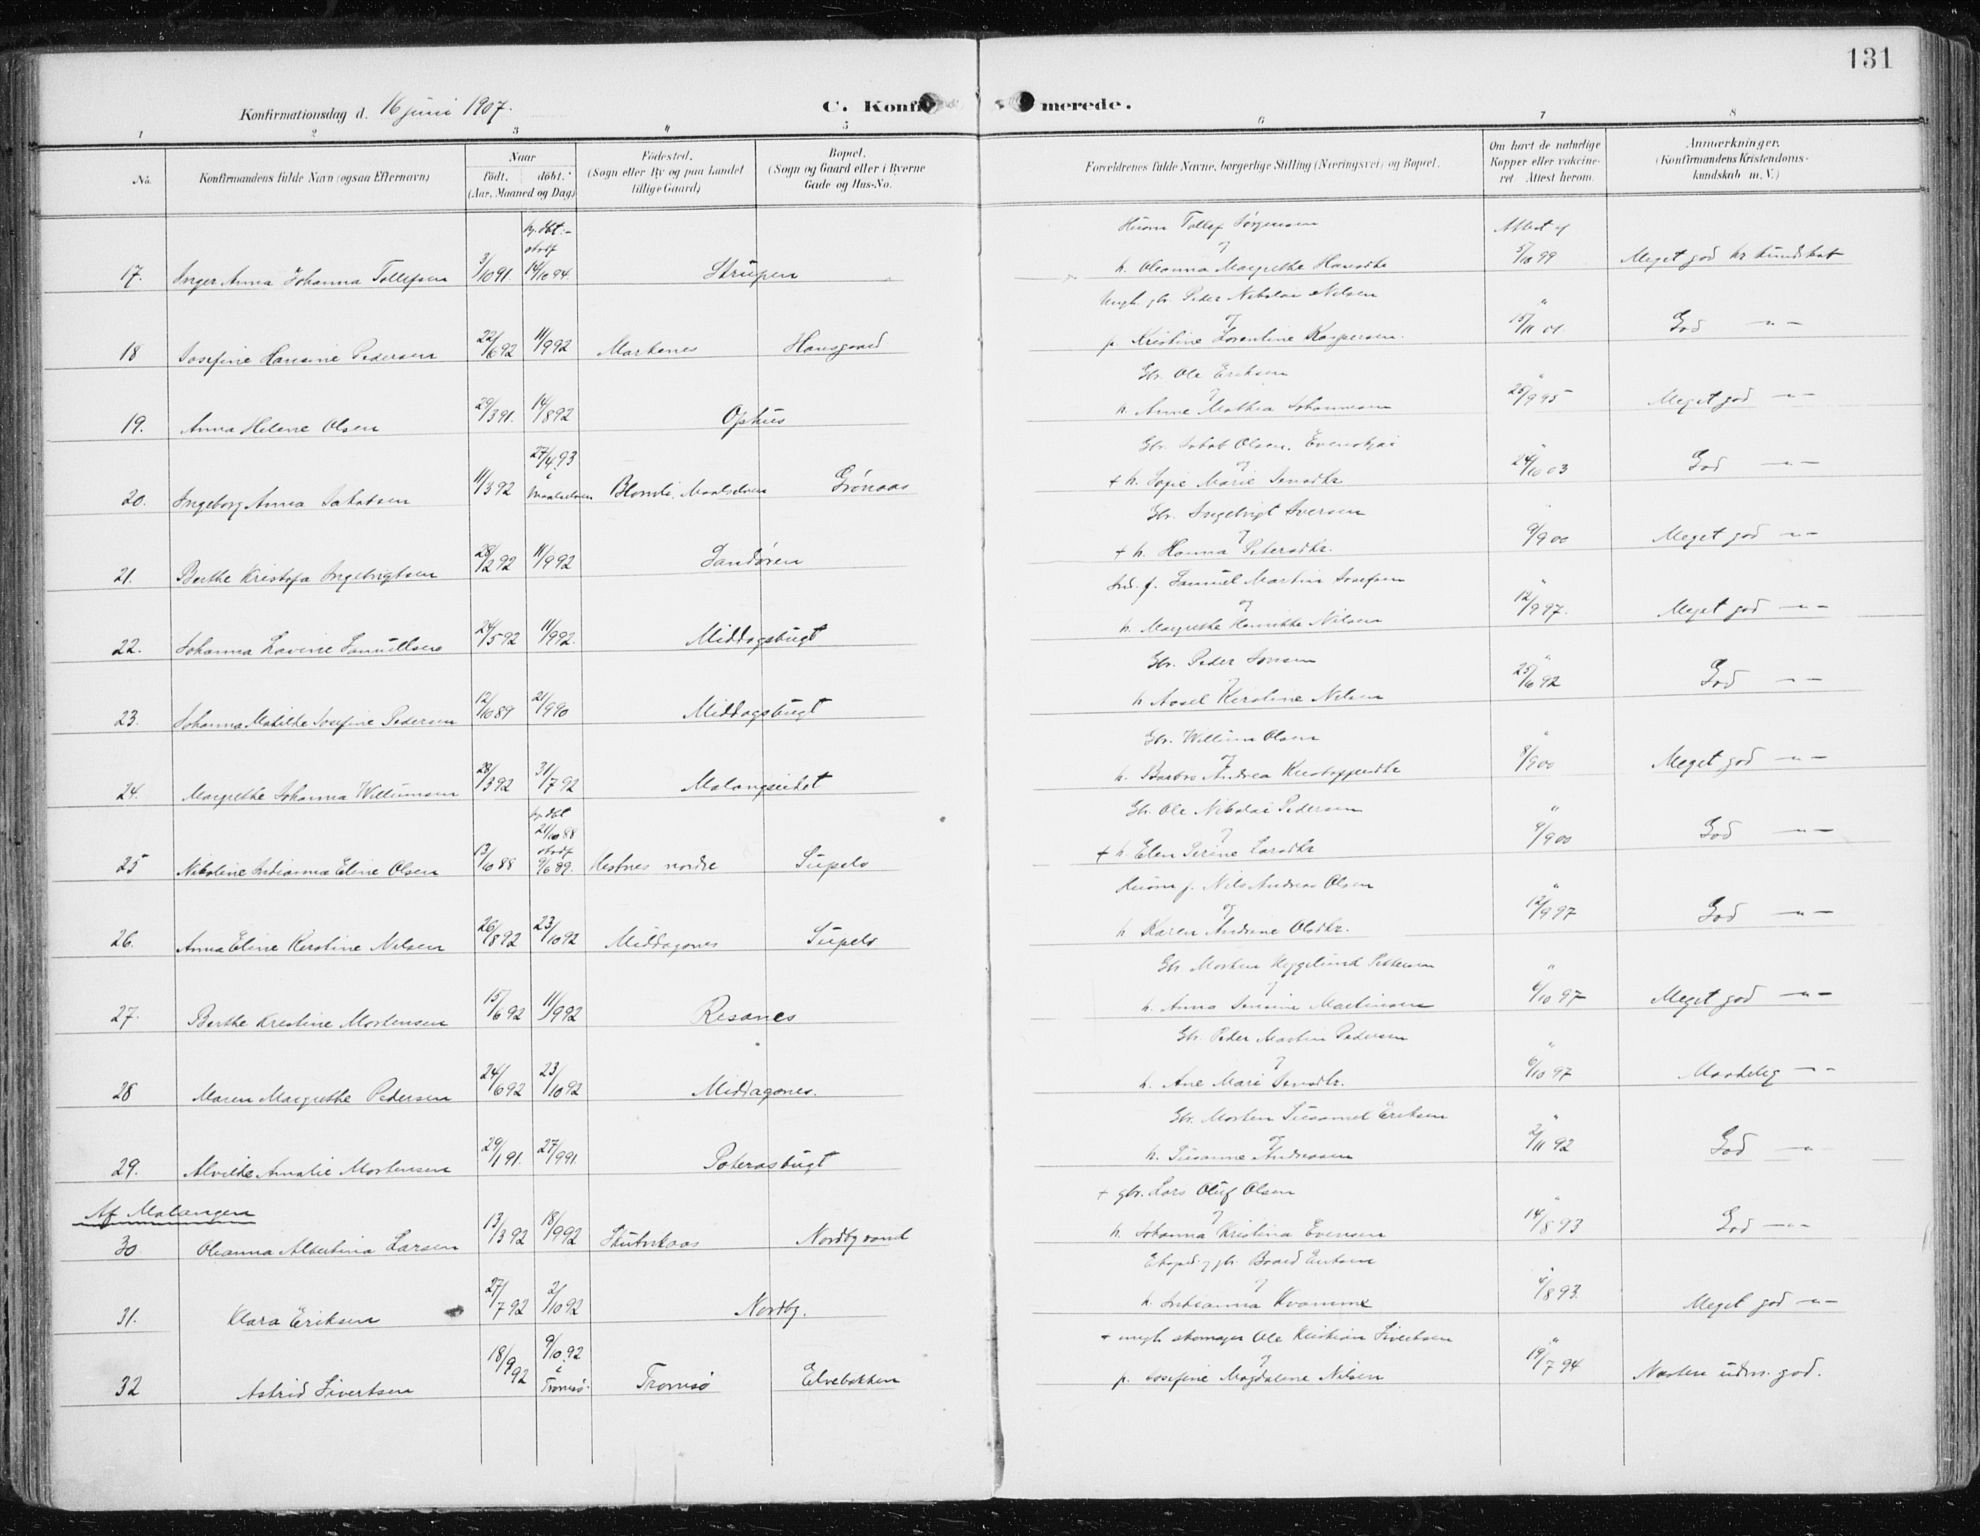 131
Konfirmationsdag d. 16 juni 1907.
C. Konfirmerede.
1 2 3 4 5 6 7 8
No.
Konfirmandens fulde Navn (ogsaa Efternavn)
Naar
födt. döbt.
(Aar, Maaned og Dag)
Födested.
(Sogn eller By og paa Landet tillige Gaard)
Bopæl.
(Sogn og Gaard eller i Byerne Gade og Hus-No.
Forældrenes fulde Navne, borgerlige Stilling (Næringsvei) og Bopæl.
Om havt de naturlige Kopper eller vakcineret. Attest herom.
Anmærkninger.
(Konfirmandens Kristendomskundskab m. V.)
17. Inger Anna Johanna Tollefsen 3/10 91 14/10 94 Strupen
Husm Tollef Jørgensen
og
h. Oleanna Margrethe Hansdtr
Attest af 5/10 99 Meget god kr kundskab
18 Josefine Hansine Pedersen 22/6 92 11/9 92 Markenes Hansgaard
Ungk. gbr. Peder Nikolai Nilsen
og
p Kristine Lorentine Kaspersen.
" 15/11 01 God -"-
19. Anna Helene Olsen 29/3 91. 14/8 92 Ophus
Gbr. Ole Eriksen
og
h. Anne Mathea Johannesen
" 25/9 95 Meget god -"-
20. Ingeborg Anna Jakobsen 11/3 92 27/4 93 i Maalselven Blomli, Maalselven Grønaas
Gbr. Jakob Olsen,
og
+ h. Sofie Marie Jensdtr
" 24/10 03 God -"-
21. Berthe Kristofa Ingebrigtsen 28/2 92 11/9 92 Sandøren
Gbr. Ingebrigt Iversen
og
+ h. Hanna Petersdtr.
9/9 00 Meget god -"-
22. Johanna Lovine Samuelsen 24/5 92 11/9 92. Middagsbugt
Ind. f. Samuel Martin Josefsen
og
h. Margrethe Henrikke Nilsen
" 12/9 97. Meget god -"-
23. Johanna Matilde Josefine Pedersen 12/10 89 21/9 90 Middagsbugt
Gbr. Peder Jensen
og
h Axsel Kerstine Nilsen
" 25/6 92 God -"-
24. Margrethe Johanna Willumsen 28/3 92 31/7 92 Malangseidet
Gbr. Willum Olsen
og
h. Barbro Andrea Kristoffersdtr
" 8/9 00 Meget god -"-
25 Nikoline Indianna Eline Olsen 13/10 88 hj. dbt 21/10 88 stadf 9/6 89. Hestnes nordre Supelv
Gbr. Ole Nikolai Pedersen
og
+ h Elen Serine Larsdtr
" 9/9 00 God -"-
26. Anna Eline Kerstine Nilsen 26/8 92 23/10 92 Middagsnes Supelv
Husm f. Nils Andreas Olsen
og
h Karen Andrine Olsdtr.
" 12/9 97 God -"-
27. Berthe Kristine Mortensen 15/6 92 11/9 92 Resanes
Gbr Morten Heggelund Pettersen
og
h. Anna Jensine Martinsen
" 6/10 97 Meget god -"-
28 Maren Margrethe Pedersen 24/6 92 23/10 92 Middagsnes.
Gbr. Peder Martin Pedersen
og
h. Ane Mari Jensdtr.
" 6/10 97 Maadelig -"-
29. Alvilde Amalie Mortensen 29/1 91. 27/9 91. Poterasbugt
Gbr. Morten Eriksen
og
h. Susanne Andreasen
" 2/11 92 God -"-
Af Malangen
30 Oleanna Albertina Larsen 13/3 92 18/9 92 Skutvikaas Nordby vand
+ gbr. Lars Oluf Olsen
og
h. Johanna Kristina Evensen
" 14/8 93 God -"-
31. Klara Eriksen 27/7 92 2/10 92 Nordby.
og gbr. Baard Eriksen
og
h. Indianna Kvamme
" 4/8 93. Meget god -"-
32 Astrid Sivertsen 18/9 92 9/10 92 i Tromsø. Tromsø Elvebakken
+ ungk. skomager Ole Kristian Sivertsen
og
p. Josefine Magdalene Nilsen
" 19/7 94 Næsten udm. god.